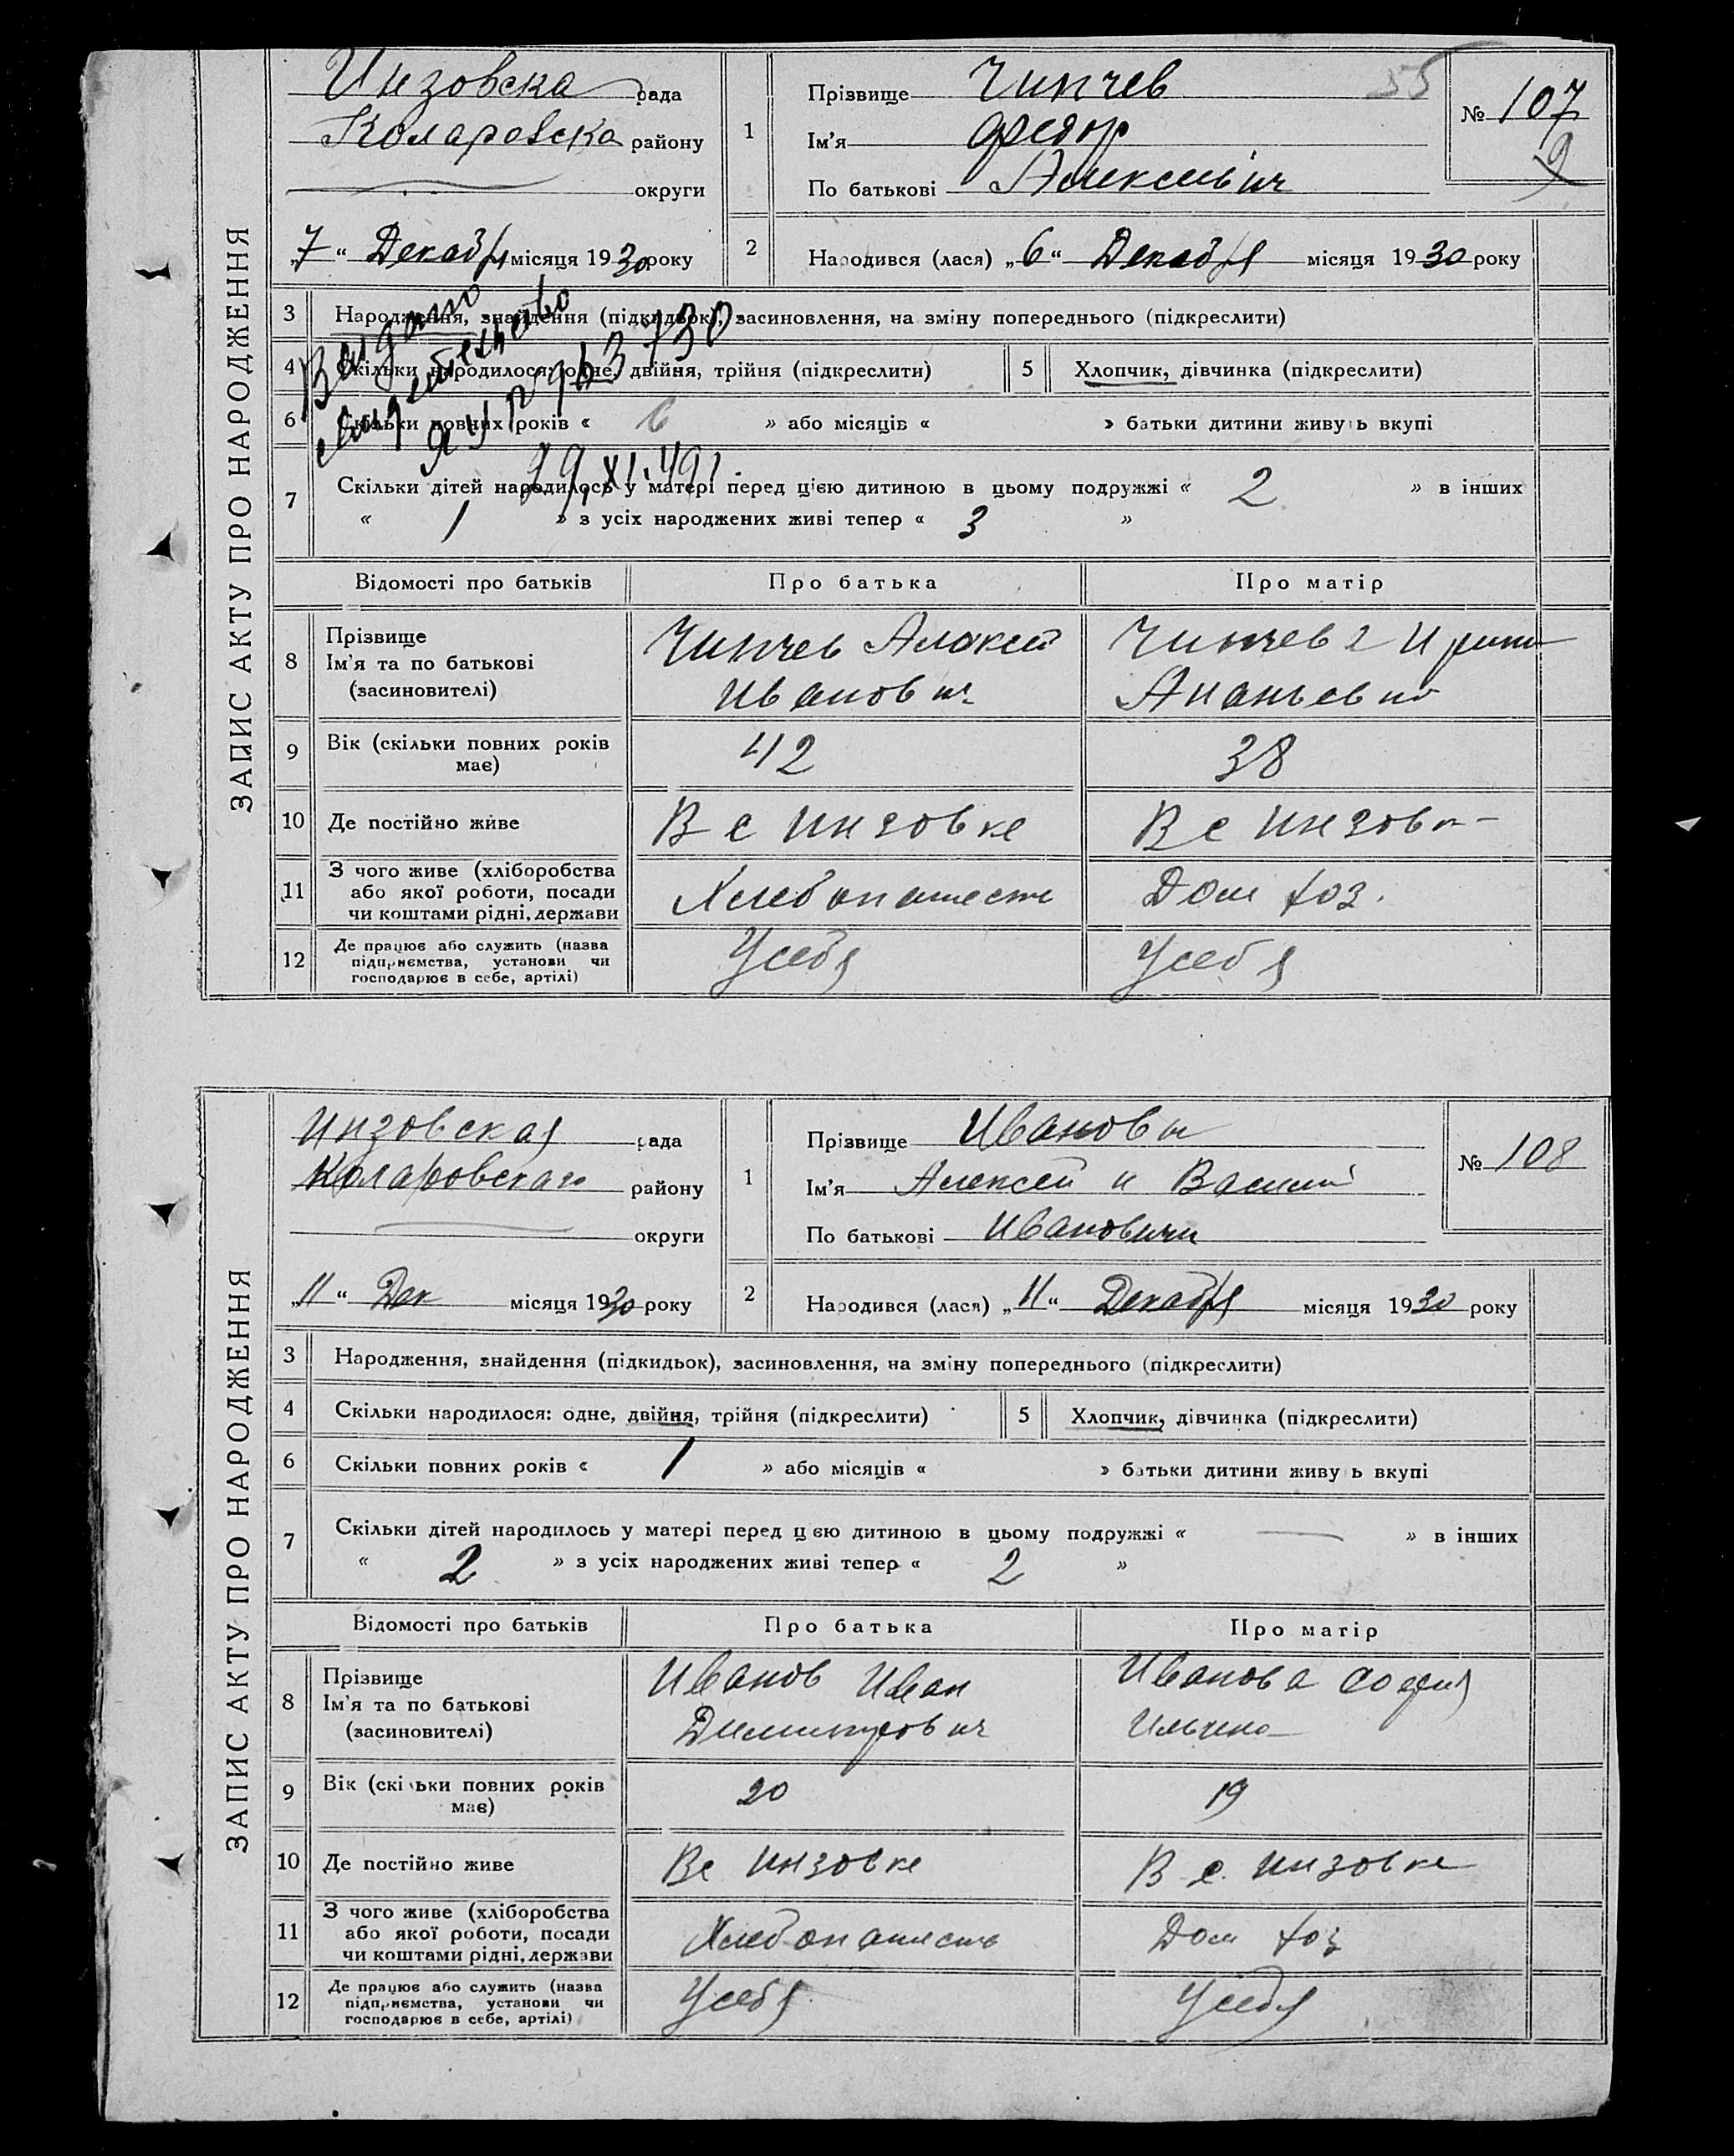 ЗАПИС АКТУ ПРО НАРОДЖЕННЯ
Инзовска рада
Коларовска району
округи
„7“ Декабря місяця 1930 року
1
Прізвище Чипчев
Ім'я Федор
По батькові Алексеевич
55
№ 107
9
2
Народився (лася) „6“ Декабря місяця 1930 року
3 Народження, знайдення (підкидьок), засиновлення, на зміну попереднього (підкреслити)
4 Скільки народилося: одне, двійня, трійня (підкреслити)
5 Хлопчик, дівчинка (підкреслити)
6 Скільки повних років « 6 » або місяців « » батьки дитини живуть вкупі
Выдано
свидетельство
ЯУ № 963730
29.XI.49г.
7 Скільки дітей народилось у матері перед цією дитиною в цьому подружжі « 2 » в інших
« 1 » з усіх народжених живі тепер « 3 »
Відомості про батьків Про батька Про матір
8 Прізвище
Ім'я та по батькові
(засиновителі)
Чипчев Алексей
Иванович
Чипчева Ирина
Ананьевна
9 Вік (скільки повних років
має)
42 38
10 Де постійно живе В с Инзовке В с Инзовке
11 З чого живе (хліборобства
або якої роботи, посади
чи коштами рідні, держави
Хлебопашеств Дом хоз.
12 Де працює або служить (назва
підприємства, установи чи
господарює в себе, артілі)
У себя У себя
ЗАПИС АКТУ ПРО НАРОДЖЕННЯ
Инзовская рада
Коларовского району
округи
„11“ Дек місяця 1930 року
1
Прізвище Ивановы
Ім'я Алексей и Василий
По батькові Ивановичи
№ 108
2
Народився (лася) „11“ Декабря місяця 1930 року
3 Народження, знайдення (підкидьок), засиновлення, на зміну попереднього (підкреслити)
4 Скільки народилося: одне, двійня, трійня (підкреслити)
5 Хлопчик, дівчинка (підкреслити)
6 Скільки повних років « 1 » або місяців « » батьки дитини живуть вкупі
7 Скільки дітей народилось у матері перед цією дитиною в цьому подружжі « — » в інших
« 2 » з усіх народжених живі тепер « 2 »
Відомості про батьків Про батька Про матір
8 Прізвище
Ім'я та по батькові
(засиновителі)
Иванов Иван
Димитрович
Иванова София
Ильична
9 Вік (скільки повних років
має)
20 19
10 Де постійно живе В с Инзовке В с. Инзовке
11 З чого живе (хліборобства
або якої роботи, посади
чи коштами рідні, держави
Хлебопашеств Дом хоз
12 Де працює або служить (назва
підприємства, установи чи
господарює в себе, артілі)
У себя У себя